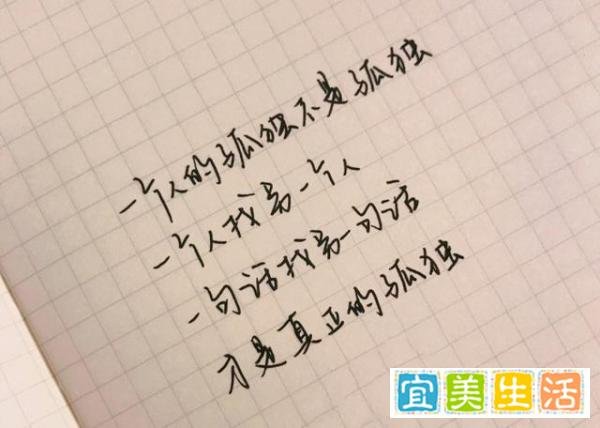 一个人的孤独不是孤独
一个人找另一个人
一句话找另一句话
才是真正的孤独
宜美生活